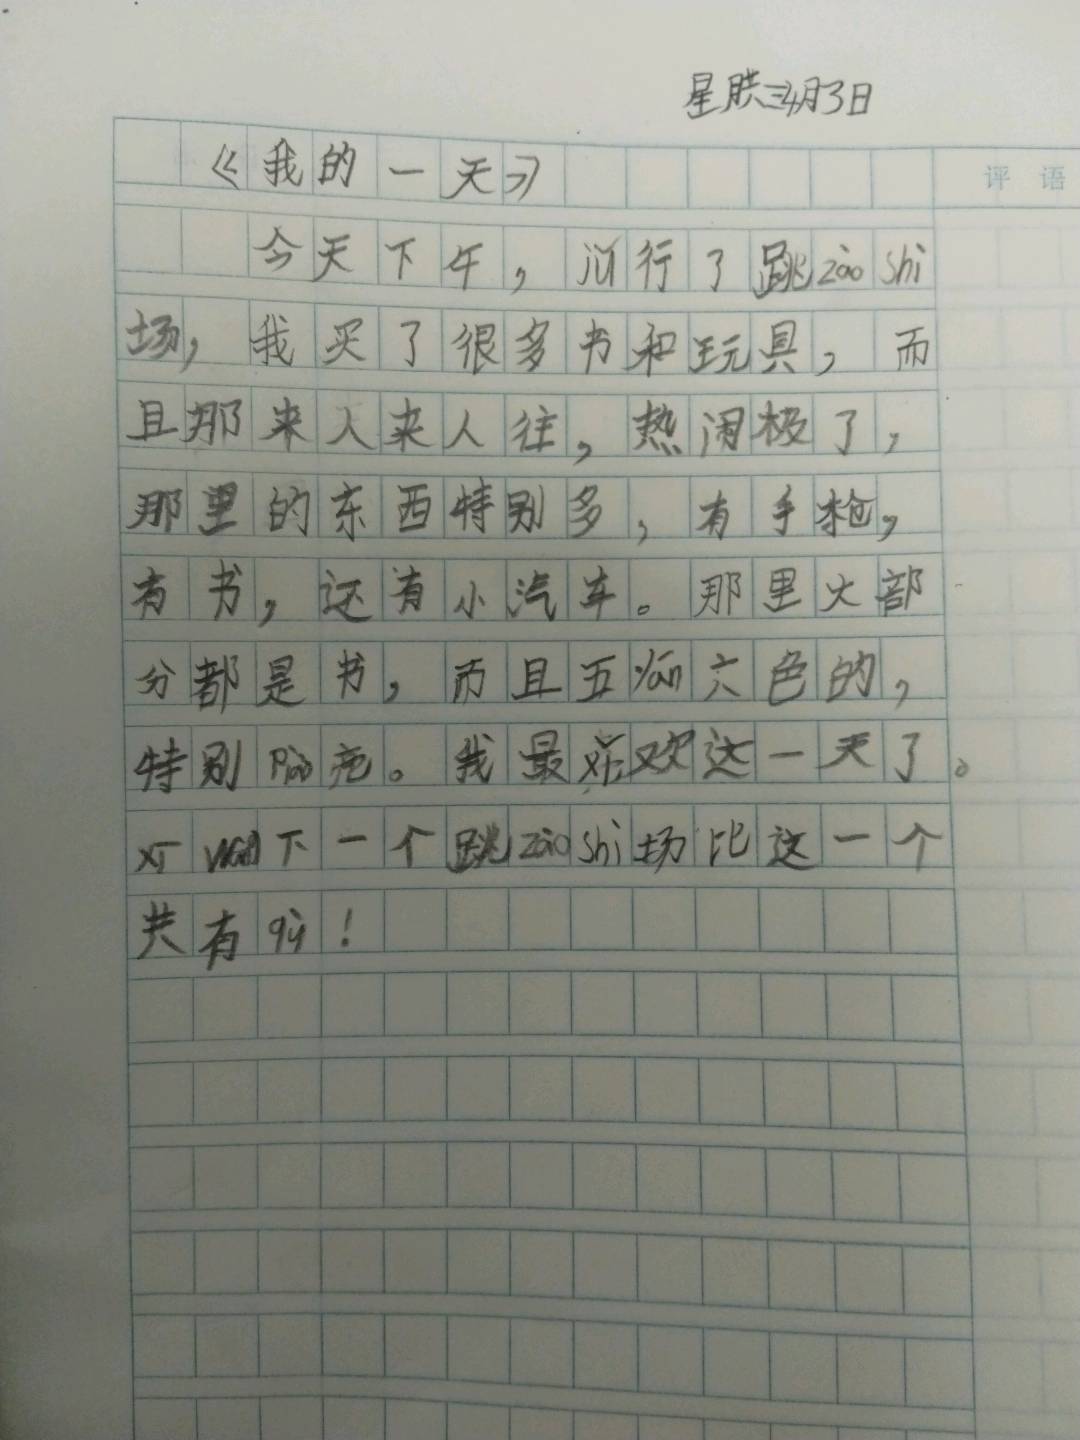 星期三4月3日
《我的一天》
评语
今天下午，行了跳zǎo shì
场，我买了很多书和玩具，而
且那来人来人往，热闹极了，
那里的东西特别多，有手枪，
有书，还有小汽车。那里大部
分都是书，而且五yán六色的，
特别piào亮。我最喜欢这一天了。
xī wàng下一个跳zǎo shì场比这一个
共有qù！